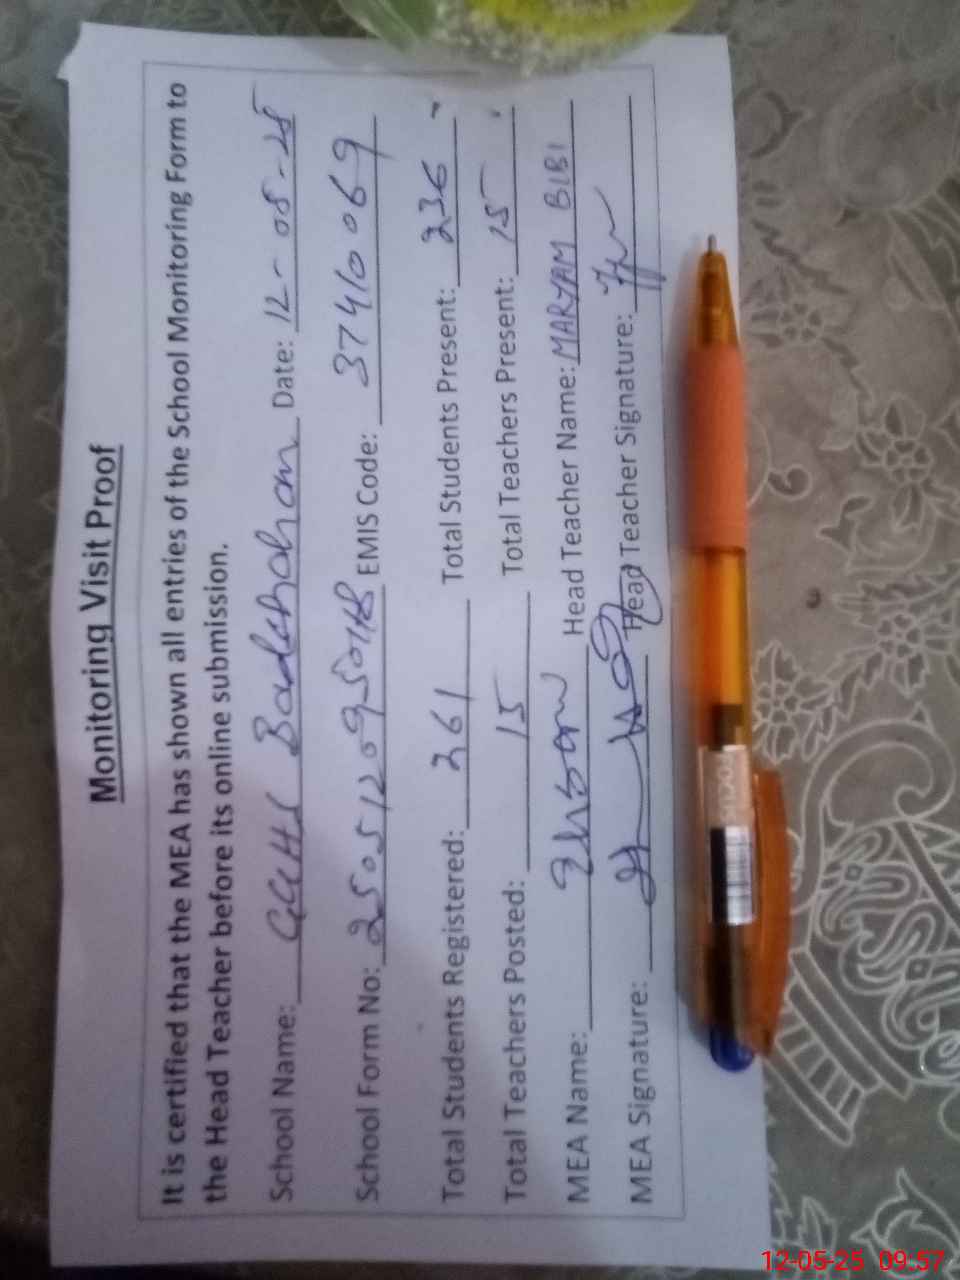 Monitoring Visit Proof
It is certified that the MEA has shown all entries of the School Monitoring Form to
the Head Teacher before its online submission.
School Name: GGHS Badshahan Date: 12-05-25
School Form No: EMIS Code: 37410069
Total Students Registered: 261 Total Students Present: 236
Total Teachers Posted: 15 Total Teachers Present: 15
MEA Name: Head Teacher Name: MARYAM BIBI
MEA Signature: Head Teacher Signature:
12-05-25 09:57